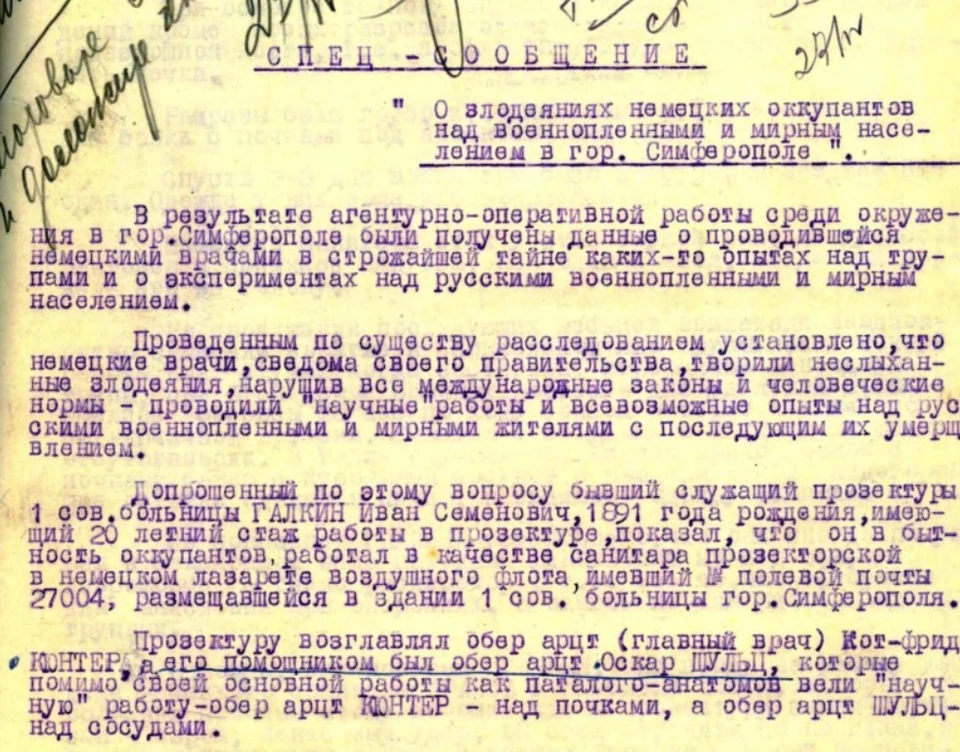 27/IV
27/IV
СПЕЦ - СООБЩЕНИЕ
" О злодеяниях немецких оккупантов
над военнопленными и мирным насе-
лением в гор. Симферополе ".
В результате агентурно-оперативной работы среди окруже-
ния в гор.Симферополе были получены данные о проводившейся
немецкими врачами в строжайшей тайне каких-то опытах над тру-
пами и о экспериментах над русскими военнопленными и мирным
населением.
Проведенным по существу расследованием установлено,что
немецкие врачи,сведома своего правительства,творили неслыхан-
ные злодеяния,нарушив все международные законы и человеческие
нормы - проводили "научные"работы и всевозможные опыты над рус
скими военнопленными и мирными жителями с последующим их умерщ
влением.
Допрошенный по этому вопросу бывший служащий прозектуры
1 сов.больницы ГАЛКИН Иван Семенович,1891 года рождения,имею-
щий 20 летний стаж работы в прозектуре,показал, что он в быт-
ность оккупантов,работал в качестве санитара прозекторской
в немецком лазарете воздушного флота,имевший № полевой почты
27004, размещавшейся в здании 1 сов. больницы гор.Симферополя.
Прозектуру возглавлял обер арцт (главный врач) Кот-фрид
КЮНТЕР,а его помощником был обер арцт Оскар ШУЛЬЦ, которые
помимо своей основной работы как паталого-анатомов вели "науч-
ную" работу-обер арцт КЮНТЕР - над почками, а обер арцт ШУЛЬЦ-
над сосудами.